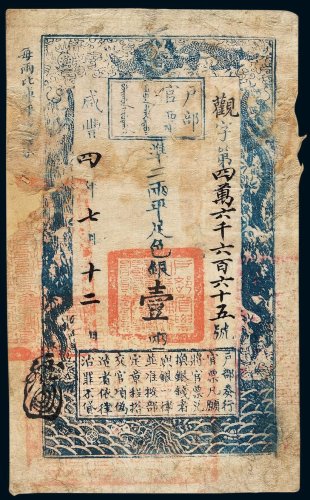 戶部
官票
觀字第四萬六千六百六十五號
準二兩平足色銀壹兩
咸豐四年七月十二日
戶部奏行
官票凡願
將官票兌
換銀錢者
與銀一律
並准按部
定章程搭
交官項偽
造者依律
治罪不貸